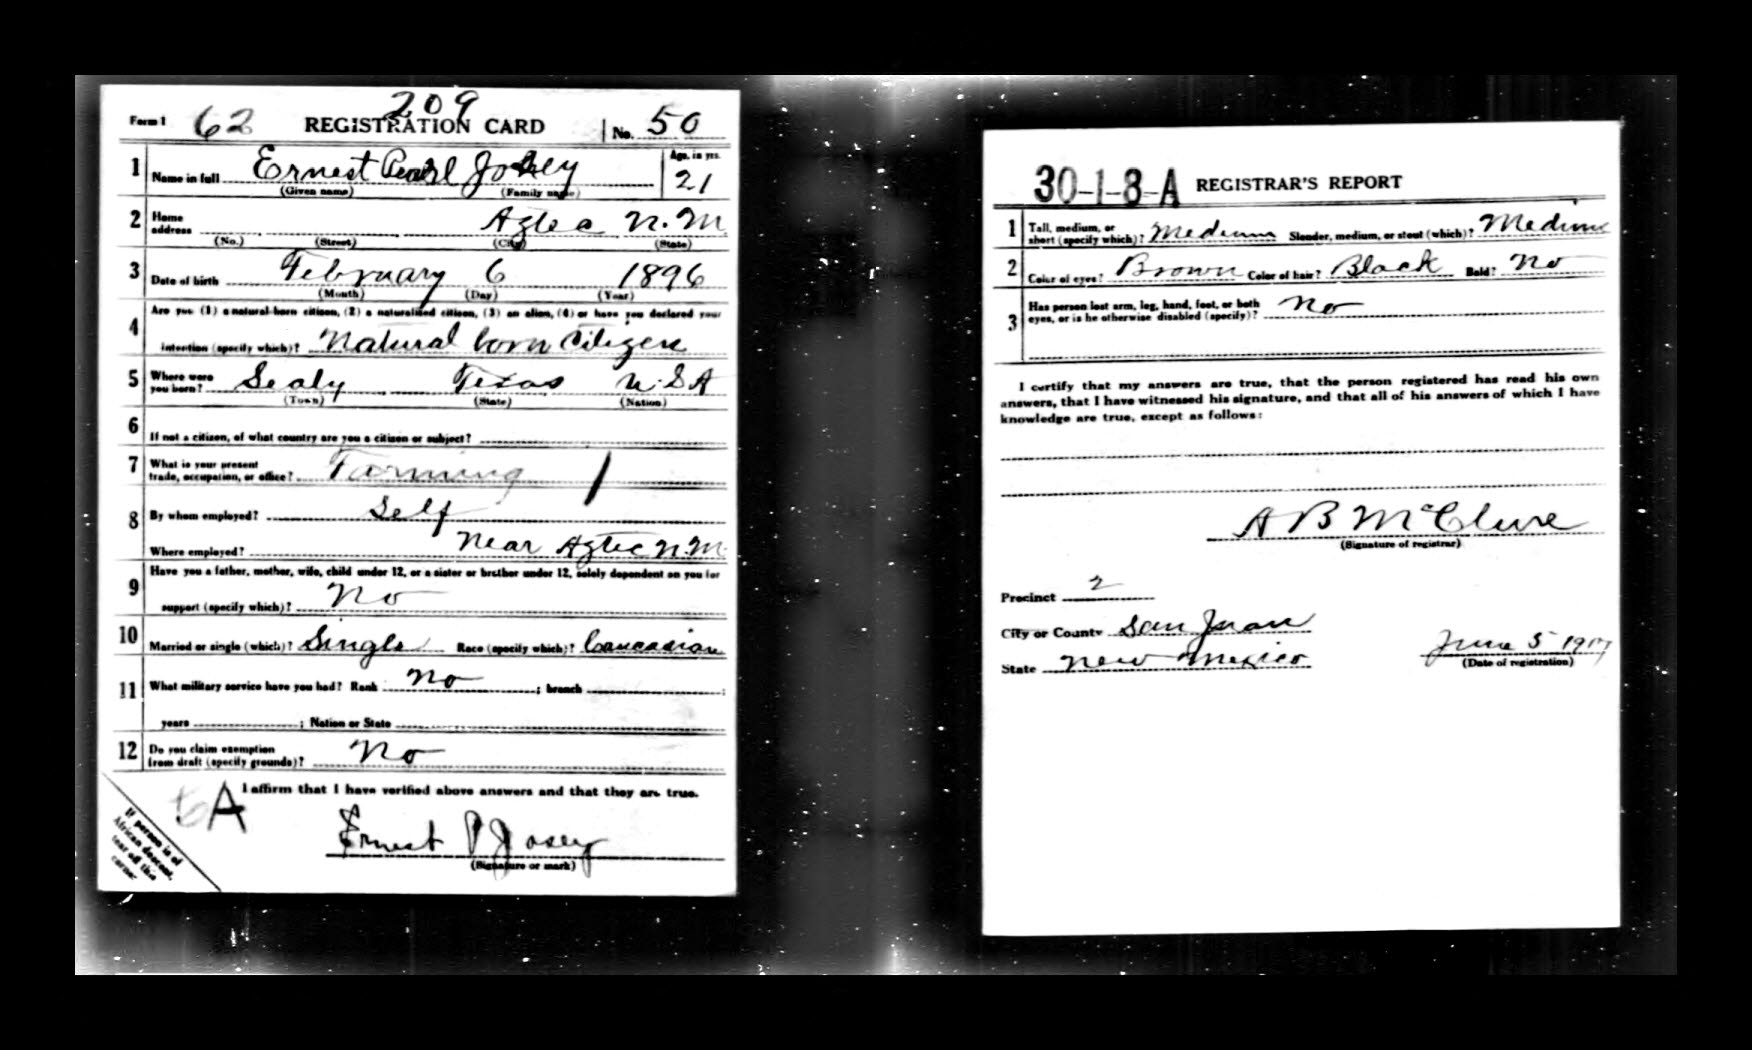 209
Form 1 62 REGISTRATION CARD No. 50
1 Name in full Ernest Pearl Josey Age, in yrs. 21
(Given name) (Family name)
2 Home address Aztec N.M.
(No.) (Street) (City) (State)
3 Date of birth February 6 1896
(Month) (Day) (Year)
Are you (1) a natural-born citizen, (2) a naturalized citizen, (3) an alien, (4) or have you declared your
4 intention (specify which)? Natural born Citizen
5 Where were you born? Sealy Texas U.S.A
(Town) (State) (Nation)
6 If not a citizen, of what country are you a citizen or subject?
7 What is your present trade, occupation, or office? Farming
8 By whom employed? Self
Where employed? Near Aztec N.M.
Have you a father, mother, wife, child under 12, or a sister or brother under 12, solely dependent on you for
9 support (specify which)? No
10 Married or single (which)? Single Race (specify which)? Caucasian
11 What military service have you had? Rank No ; branch ;
years ; Nation or State
12 Do you claim exemption from draft (specify grounds)? No
I affirm that I have verified above answers and that they are true.
A
Ernest P Josey
(Signature or mark)
If person is of
African descent,
tear off this
corner
30-1-8-A REGISTRAR'S REPORT
1 Tall, medium, or short (specify which)? Medium Slender, medium, or stout (which)? Medium
2 Color of eyes? Brown Color of hair? Black Bald? No
3 Has person lost arm, leg, hand, foot, or both eyes, or is he otherwise disabled (specify)? No
I certify that my answers are true, that the person registered has read his own
answers, that I have witnessed his signature, and that all of his answers of which I have
knowledge are true, except as follows:
A B McClure
(Signature of registrar)
Precinct 2
City or County San Juan
State New Mexico
June 5 1917
(Date of registration)